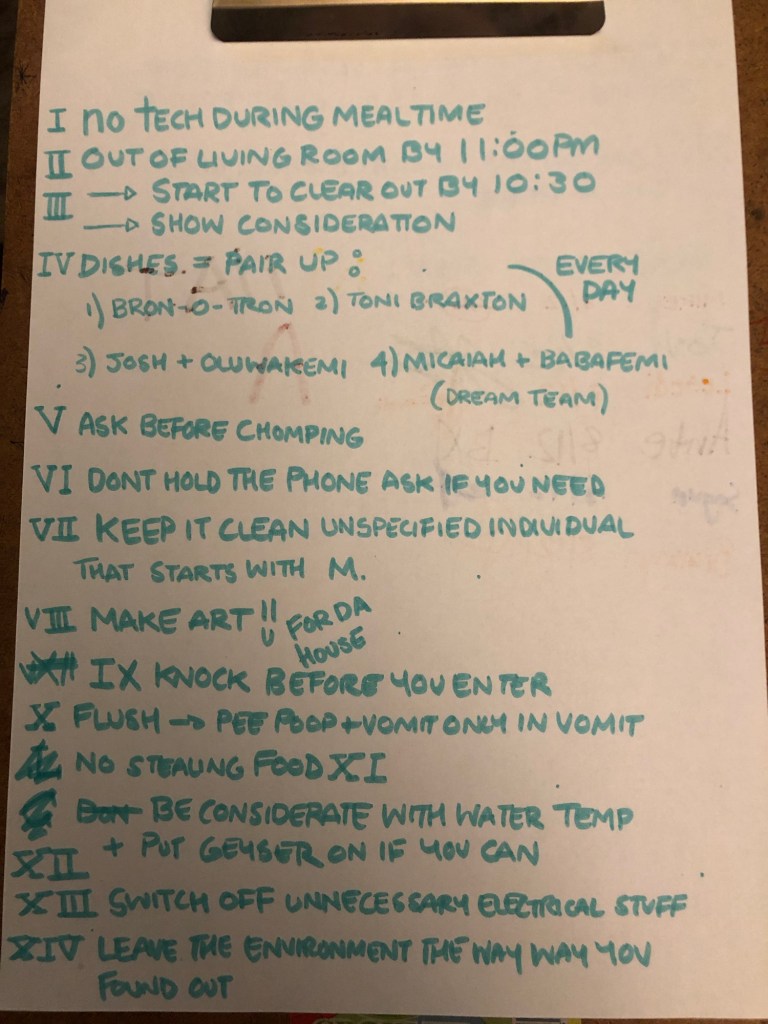 I no TECH DURING MEALTIME
II OUT OF LIVING ROOM BY 11:00PM
III → START TO CLEAR OUT BY 10:30
→ SHOW CONSIDERATION
IV DISHES = PAIR UP :
EVERY
DAY
1) BRON-O-TRON 2) TONI BRAXTON
3) JOSH + OLUWAKEMI 4) MICAIAH + BABAFEMI
(DREAM TEAM)
V ASK BEFORE CHOMPING
VI DONT HOLD THE PHONE ASK IF YOU NEED
VII KEEP IT CLEAN UNSPECIFIED INDIVIDUAL
THAT STARTS WITH M.
VIII MAKE ART !! FOR DA
HOUSE
IX KNOCK BEFORE YOU ENTER
X FLUSH → PEE POOP + VOMIT ONLY IN VOMIT
NO STEALING FOOD XI
BE CONSIDERATE WITH WATER TEMP
XII + PUT GEYSER ON IF YOU CAN
XIII SWITCH OFF UNNECESSARY ELECTRICAL STUFF
XIV LEAVE THE ENVIRONMENT THE WAY WAY YOU
FOUND OUT